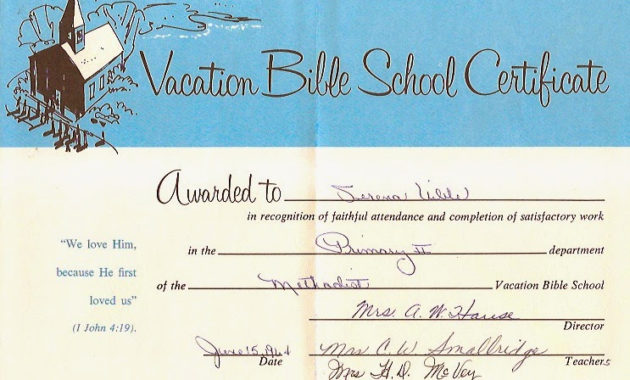 Vacation Bible School Certificate
Awarded to
in recognition of faithful attendance and completion of satisfactory work
in the Primary II department
of the Methodist Vacation Bible School
"We love Him,
because He first
loved us"
(I John 4:19).
Mrs. A. W. Hause
Director
June 15, 1964 Mrs C. W. Smalbridge
Date Teachers
Mrs H. D. McVey